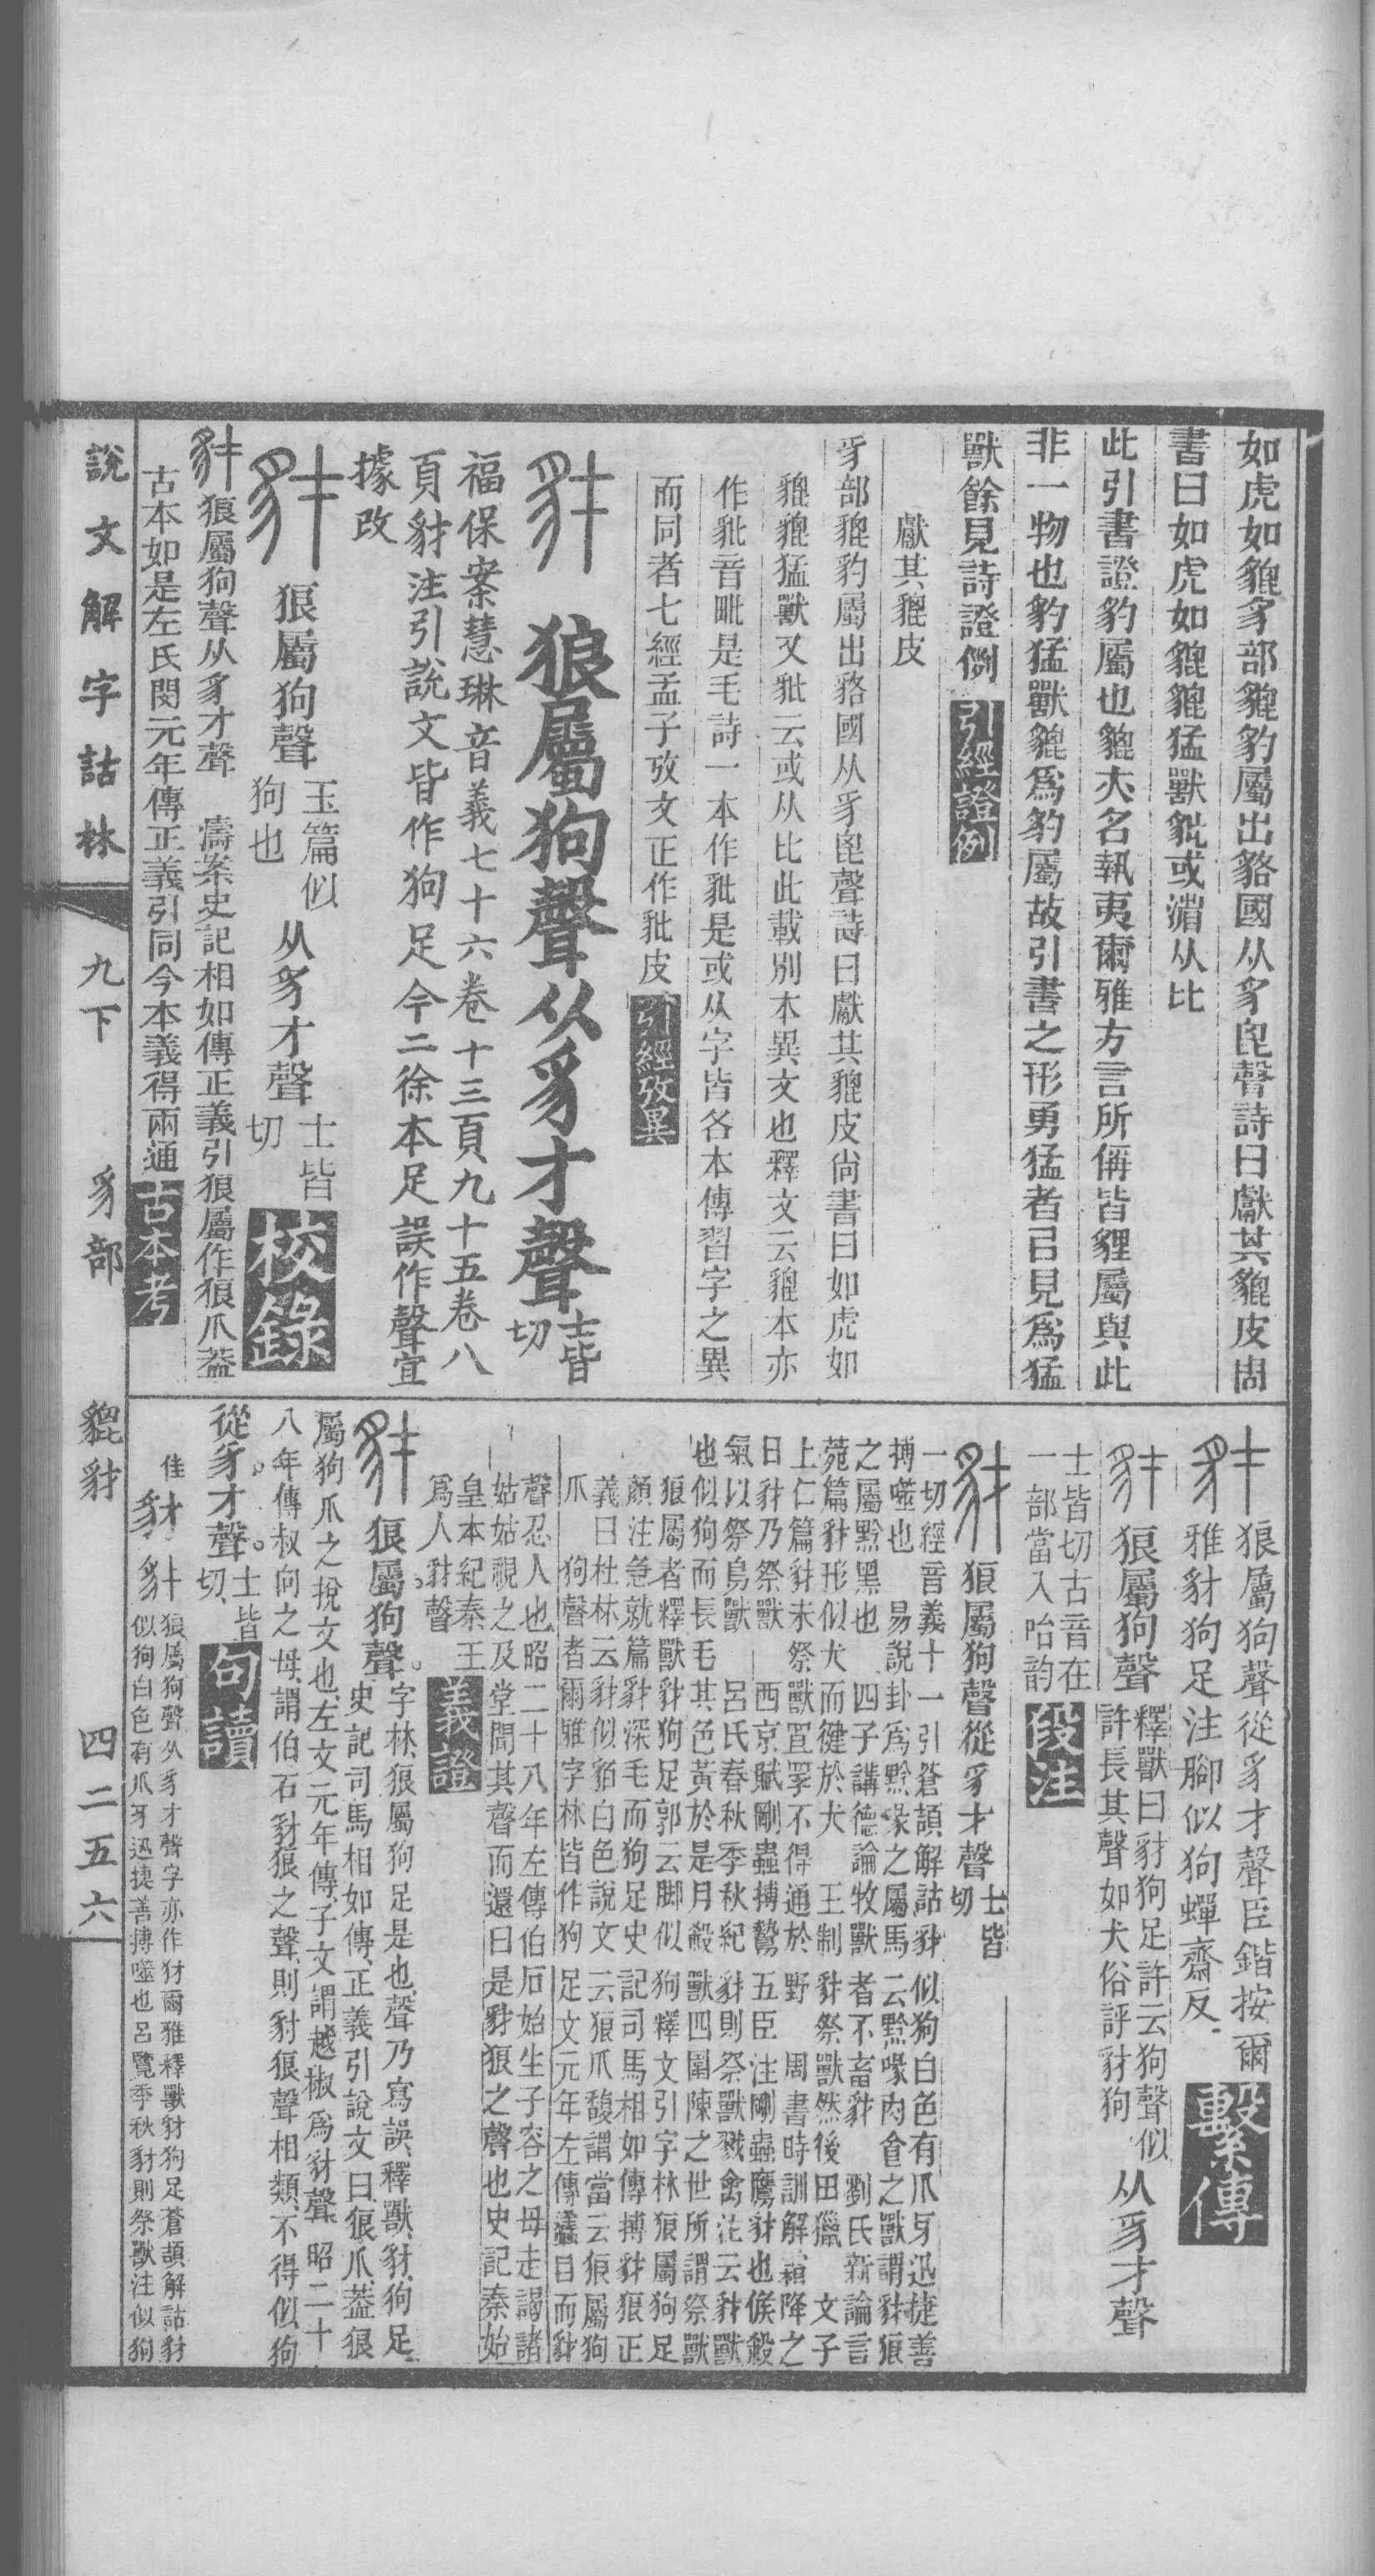 如虎如貔豸部貔豹屬出貉國从豸𣬉聲詩曰獻其貔皮周
書曰如虎如貔貔猛獸豼或𤟤从比
此引書證豹屬也貔大名執夷爾雅方言所偁皆貍屬與此
非一物也豹猛獸貔爲豹屬故引書之形勇猛者㠯見爲猛
獸餘見詩證例引經證例
獻其貔皮
豸部貔豹屬出貉國从豸𣬉聲詩曰獻其貔皮尙書曰如虎如
貔貔猛獸又豼云或从比此載別本異文也釋文云貔本亦
作豼音毗是毛詩一本作豼是或从字皆各本傳習字之異
而同者七經孟子攷文正作豼皮引經攷異
豺 狼屬狗聲从豸才聲士皆切
福保案慧琳音義七十六卷十三頁九十五卷八
頁豺注引說文皆作狗足今二徐本足誤作聲宜
據改
豺 狼屬狗聲玉篇似狗也从豸才聲士皆切校錄
豺狼屬狗聲从豸才聲 濤案史記相如傳正義引狼屬作狼爪葢
古本如是左氏閔元年傳正義引同今本義得兩通古本考
豺 狼屬狗聲從豸才聲臣鍇按爾
雅豺狗足注腳似狗蟬齋反繫傳
豺 狼屬狗聲釋獸曰豺狗足許云狗聲似許長其聲如犬俗評豺狗从豸才聲
士皆切古音在一部當入咍韵段注
豺 狼屬狗聲從豸才聲士皆切
一切經音義十一引蒼頡解詁豺似狗白色有爪牙迅捷善
搏噬也 易說卦爲黔喙之屬馬云黔喙肉食之獸謂豺狼
之屬黔黑也 四子講德論牧獸者不畜豺 劉氏新論言
菀篇豺形似犬而健於犬 王制豺祭獸然後田獵 文子
上仁篇豺未祭獸罝罦不得通於野 周書時訓解霜降之
日豺乃祭獸 西京賦剛蟲搏鷙五臣注剛蟲鷹豺也候殺
氣以祭鳥獸 呂氏春秋季秋紀豺則祭獸戮禽注云豺獸
也似狗而長毛其色黃於是月殺獸四圍陳之世所謂祭獸
狼屬者釋獸豺狗足郭云脚似狗釋文引字林狼屬狗足
顏注急就篇豺深毛而狗足史記司馬相如傳搏豺狼正
義曰杜林云豺似貊白色說文云狼爪馥謂當云狼屬狗
爪 狗聲者爾雅字林皆作狗足文元年左傳蠭目而豺
聲忍人也昭二十八年左傳伯石始生子容之母走謁諸
姑姑視之及堂聞其聲而還曰是豺狼之聲也史記秦始
皇本紀秦王爲人豺聲義證
豺 狼屬狗聲字林狼屬狗足是也聲乃寫誤釋獸豺狗足史記司馬相如傳正義引說文曰狼爪葢狼
屬狗爪之挩文也左文元年傳子文謂越椒爲豺聲昭二十
八年傳叔向之母謂伯石豺狼之聲則豺狼聲相類不得似狗
從豸才聲士皆切句讀
豺狼屬狗聲从豸才聲字亦作犲爾雅釋獸豺狗足蒼頡解詁豺
似狗白色有爪牙迅捷善搏噬也呂覽季秋豺則祭獸注似狗
說文解字詁林 九下 豸部 貔豺 四二五六